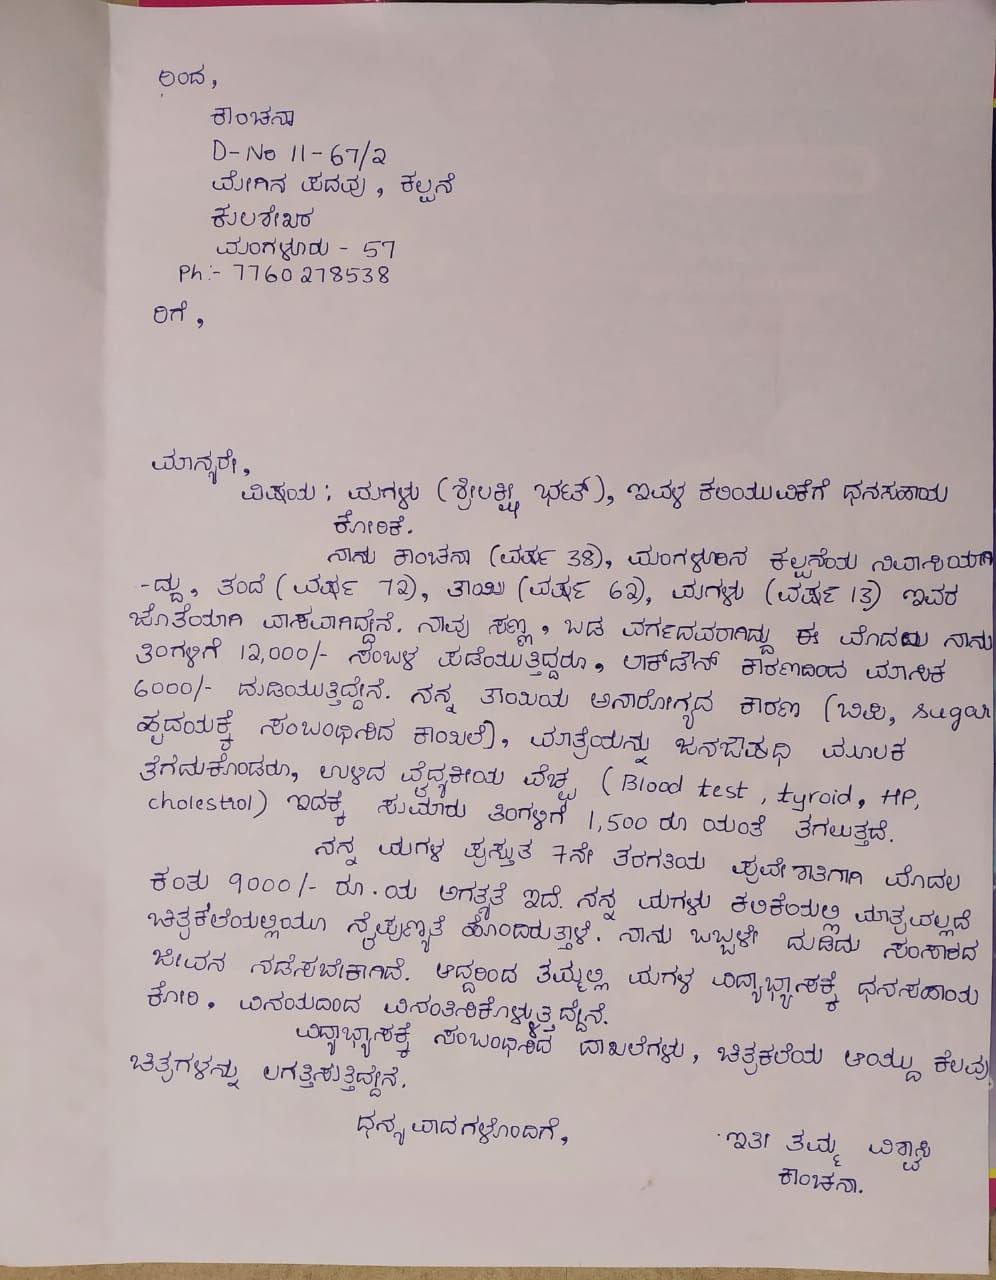 ರಿಂದ,
ಕಾಂಚನಾ
D-No 11-67/2
ಮೇಗಿನ ಪದವು, ಕಲ್ಪನೆ
ಕುಲಶೇಖರ
ಮಂಗಳೂರು - 57
Ph:- 7760278538
ರಿಗೆ,
ಮಾನ್ಯರೇ,
ವಿಷಯ: ಮಗಳು (ಶ್ರೀಲಕ್ಷ್ಮೀ ಭಟ್), ಇವಳ ಕಲಿಯುವಿಕೆಗೆ ಧನಸಹಾಯ
ಕೋರಿಕೆ.
ನಾನು ಕಾಂಚನಾ (ವರ್ಷ 38), ಮಂಗಳೂರಿನ ಕಲ್ಪನೆಯ ನಿವಾಸಿಯಾಗಿ
-ದ್ದು, ತಂದೆ (ವರ್ಷ 72), ತಾಯಿ (ವರ್ಷ 62), ಮಗಳು (ವರ್ಷ 13) ಇವರ
ಜೊತೆಯಾಗಿ ವಾಸವಾಗಿದ್ದೇನೆ. ನಾವು ಸಣ್ಣ, ಬಡ ವರ್ಗದವರಾಗಿದ್ದು ಈ ಮೊದಲು ನಾನು
ತಿಂಗಳಿಗೆ 12,000/- ಸಂಬಳ ಪಡೆಯುತ್ತಿದ್ದರೂ, ಲಾಕ್‌ಡೌನ್ ಕಾರಣದಿಂದ ಮಾಸಿಕ
6000/- ದುಡಿಯುತ್ತಿದ್ದೇನೆ. ನನ್ನ ತಾಯಿಯ ಅನಾರೋಗ್ಯದ ಕಾರಣ (ಬಿಪಿ, sugar
ಹೃದಯಕ್ಕೆ ಸಂಬಂಧಿಸಿದ ಕಾಯಿಲೆ), ಮಾತ್ರೆಯನ್ನು ಜನಔಷಧಿ ಮೂಲಕ
ತೆಗೆದುಕೊಂಡರೂ, ಉಳಿದ ವೈದ್ಯಕೀಯ ವೆಚ್ಚ (Blood test, tyroid, HP,
cholestrol) ಇದಕ್ಕೆ ಸುಮಾರು ತಿಂಗಳಿಗೆ 1,500 ರೂ ಯಂತೆ ತಗಲುತ್ತದೆ.
ನನ್ನ ಮಗಳ ಪ್ರಸ್ತುತ 7ನೇ ತರಗತಿಯ ಪ್ರವೇಶಾತಿಗಾಗಿ ಮೊದಲ
ಕಂತು 9000/- ರೂ.ಯ ಅಗತ್ಯತೆ ಇದೆ. ನನ್ನ ಮಗಳು ಕಲಿಕೆಯಲ್ಲಿ ಮಾತ್ರವಲ್ಲದೆ
ಚಿತ್ರಕಲೆಯಲ್ಲಿಯೂ ನೈಪುಣ್ಯತೆ ಹೊಂದಿರುತ್ತಾಳೆ. ನಾನು ಒಬ್ಬಳೇ ದುಡಿದು ಸಂಸಾರದ
ಜೀವನ ನಡೆಸಬೇಕಾಗಿದೆ. ಆದ್ದರಿಂದ ತಮ್ಮಲ್ಲಿ ಮಗಳ ವಿದ್ಯಾಭ್ಯಾಸಕ್ಕೆ ಧನಸಹಾಯ
ಕೋರಿ, ವಿನಯದಿಂದ ವಿನಂತಿಸಿಕೊಳ್ಳುತ್ತಿದ್ದೇನೆ.
ವಿದ್ಯಾಭ್ಯಾಸಕ್ಕೆ ಸಂಬಂಧಿಸಿದ ದಾಖಲೆಗಳು, ಚಿತ್ರಕಲೆಯ ಆಯ್ದು ಕೆಲವು
ಚಿತ್ರಗಳನ್ನು ಲಗತ್ತಿಸುತ್ತಿದ್ದೇನೆ.
ಧನ್ಯವಾದಗಳೊಂದಿಗೆ,
ಇತೀ ತಮ್ಮ ವಿಶ್ವಾಸಿ
ಕಾಂಚನಾ.